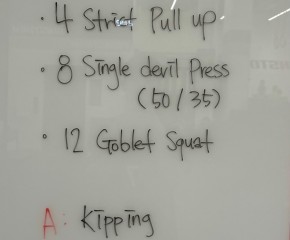 · 4 Strict Pull up
· 8 Single devil Press
(50/35)
· 12 Goblet Squat
A: Kipping